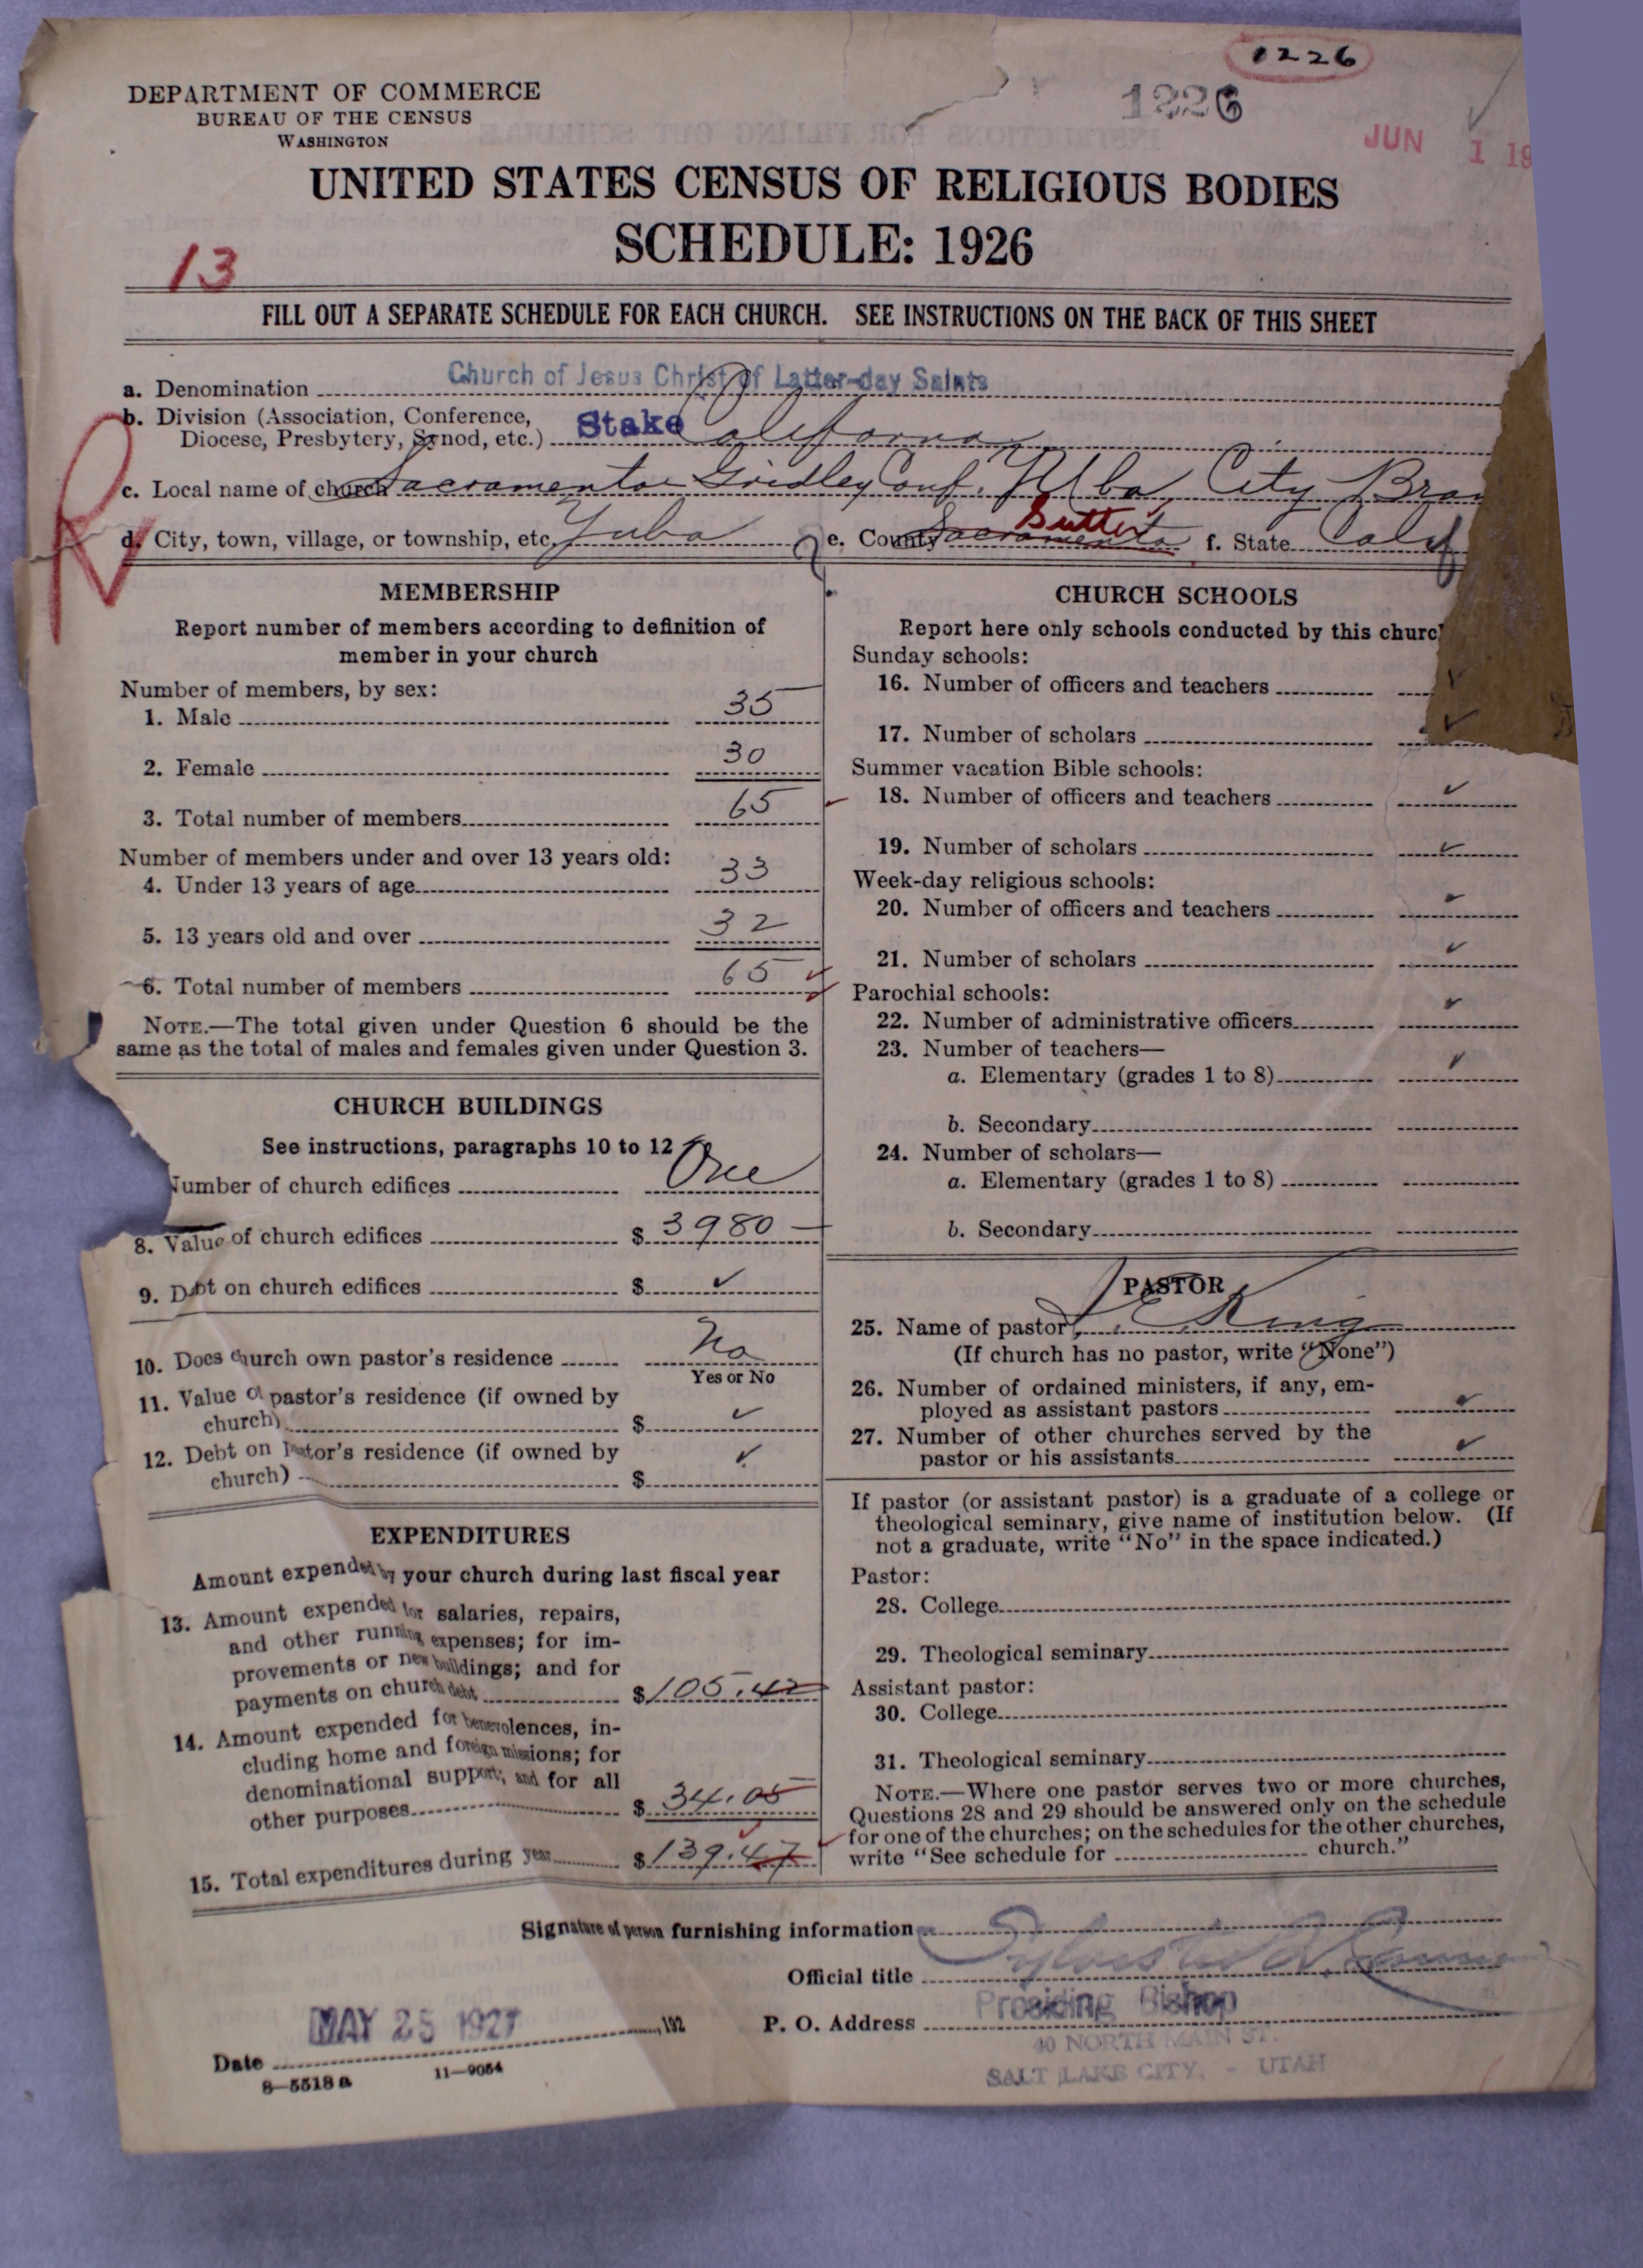 1226
1226
JUN 1 19
DEPARTMENT OF COMMERCE
BUREAU OF THE CENSUS
WASHINGTON
UNITED STATES CENSUS OF RELIGIOUS BODIES
SCHEDULE: 1926
13
FILL OUT A SEPARATE SCHEDULE FOR EACH CHURCH. SEE INSTRUCTIONS ON THE BACK OF THIS SHEET
a. Denomination Church of Jesus Christ of Latter-day Saints
b. Division (Association, Conference,
Diocese, Presbytery, Synod, etc.) Stake California
R
c. Local name of church Sacramento Gridley Conf. Yuba City Bran
d. City, town, village, or township, etc. Yuba e. County Sacramento Sutter f. State Calif
MEMBERSHIP
Report number of members according to definition of
member in your church
Number of members, by sex:
1. Male 35
2. Female 30
3. Total number of members 65
Number of members under and over 13 years old:
4. Under 13 years of age 33
5. 13 years old and over 32
6. Total number of members 65
NOTE.—The total given under Question 6 should be the
same as the total of males and females given under Question 3.
CHURCH BUILDINGS
See instructions, paragraphs 10 to 12
Number of church edifices One
8. Value of church edifices $ 3980
9. Debt on church edifices $ ✓
10. Does church own pastor's residence No
Yes or No
11. Value of pastor's residence (if owned by
church) $ ✓
12. Debt on pastor's residence (if owned by
church) $ ✓
EXPENDITURES
Amount expended by your church during last fiscal year
13. Amount expended for salaries, repairs,
and other running expenses; for im-
provements or new buildings; and for
payments on church debt $ 105.42
14. Amount expended for benevolences, in-
cluding home and foreign missions; for
denominational support; and for all
other purposes $ 34.05
15. Total expenditures during year $ 139.47
CHURCH SCHOOLS
Report here only schools conducted by this churc
Sunday schools:
16. Number of officers and teachers ✓
17. Number of scholars ✓
Summer vacation Bible schools:
18. Number of officers and teachers ✓
19. Number of scholars ✓
Week-day religious schools:
20. Number of officers and teachers ✓
21. Number of scholars ✓
Parochial schools:
22. Number of administrative officers ✓
23. Number of teachers—
a. Elementary (grades 1 to 8) ✓
b. Secondary
24. Number of scholars—
a. Elementary (grades 1 to 8)
b. Secondary
PASTOR
25. Name of pastor E. King
(If church has no pastor, write "None")
26. Number of ordained ministers, if any, em-
ployed as assistant pastors ✓
27. Number of other churches served by the
pastor or his assistants ✓
If pastor (or assistant pastor) is a graduate of a college or
theological seminary, give name of institution below. (If
not a graduate, write "No" in the space indicated.)
Pastor:
28. College
29. Theological seminary
Assistant pastor:
30. College
31. Theological seminary
NOTE.—Where one pastor serves two or more churches,
Questions 28 and 29 should be answered only on the schedule
for one of the churches; on the schedules for the other churches,
write "See schedule for church."
Signature of person furnishing information Sylvester Q. Cannon
Official title
Presiding Bishop
P. O. Address
40 NORTH MAIN ST.
SALT LAKE CITY, - UTAH
MAY 25 1927
Date , 192
8—5518 a 11—9054